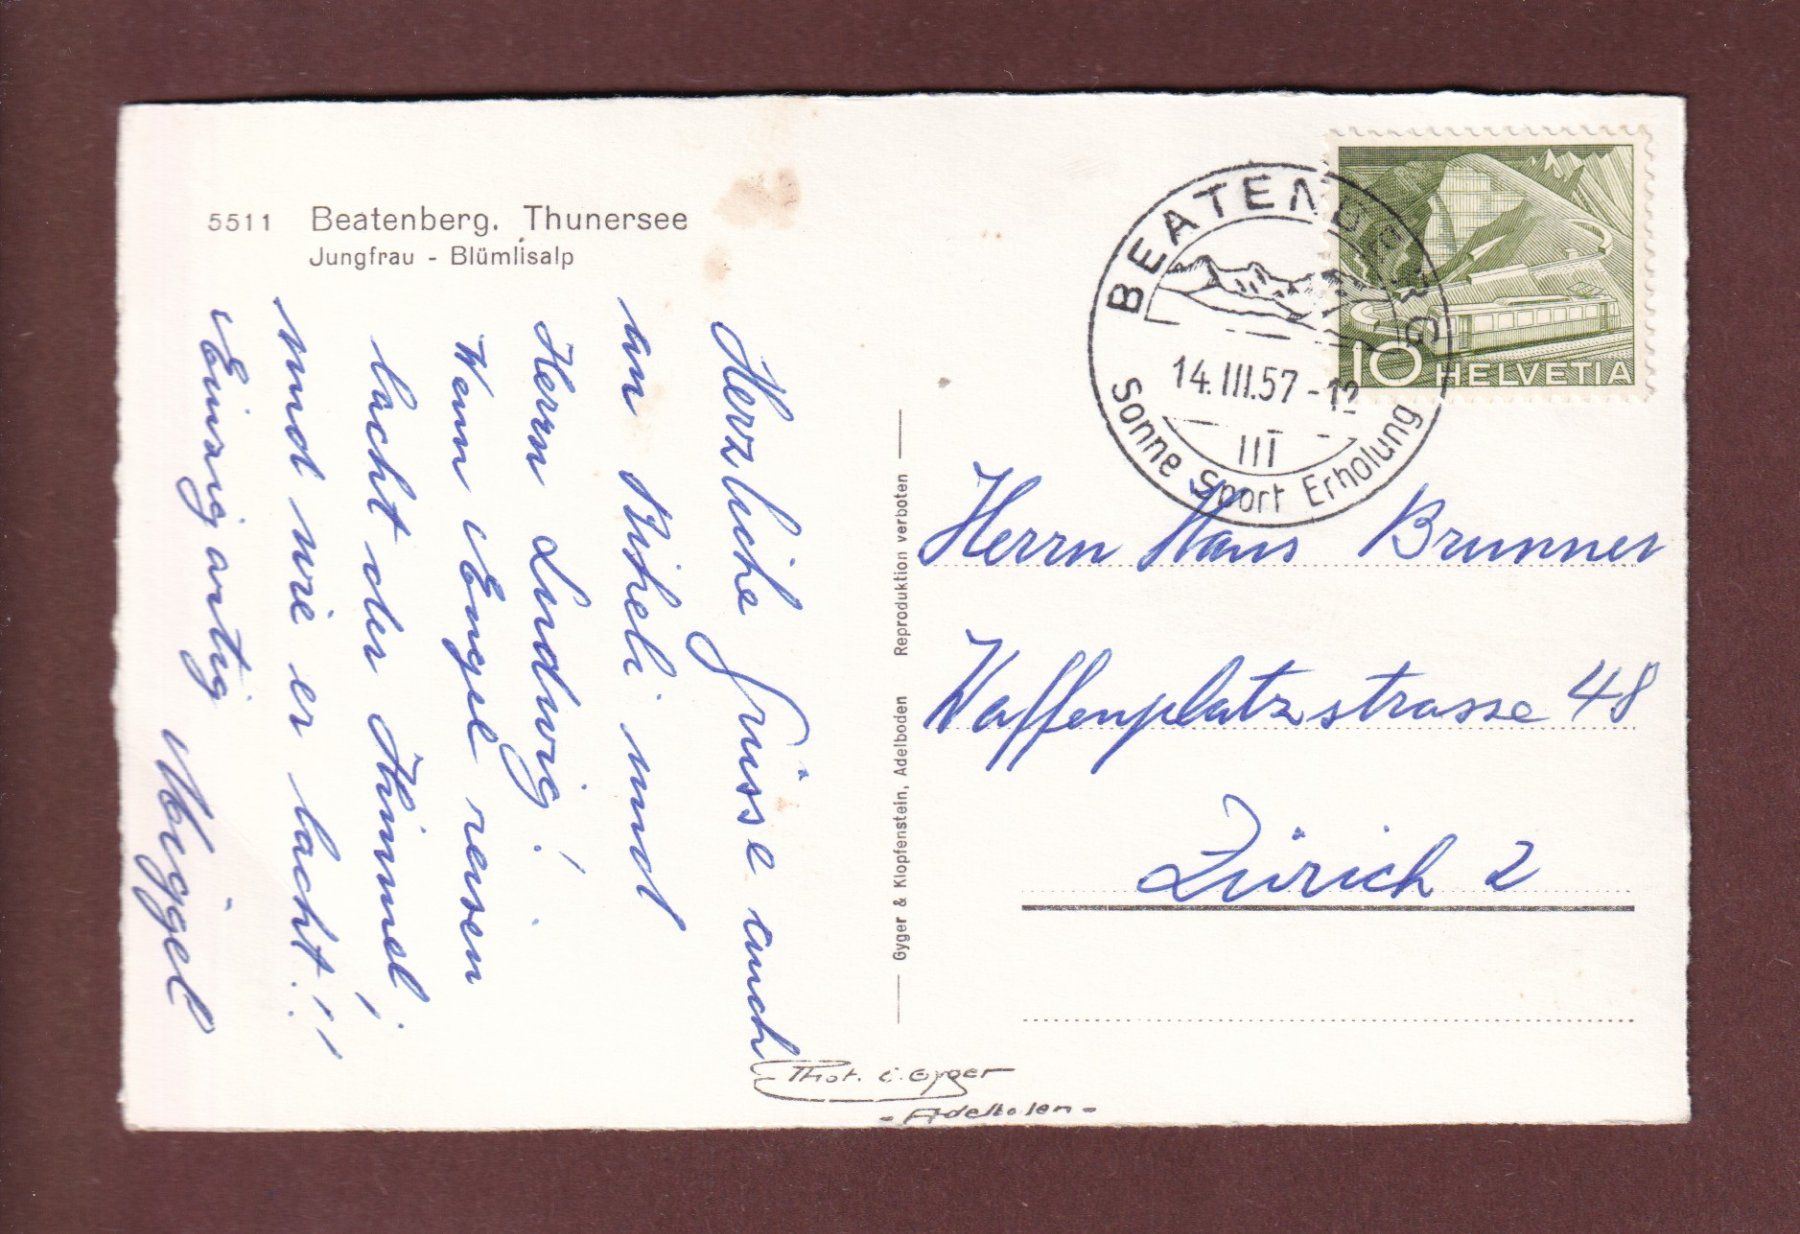 5511 Beatenberg. Thunersee
Jungfrau - Blümlisalp
Herzliche Grüsse auch
an Büheli und
Herrn Ludwig!
Wenn Engel reisen
lacht der Himmel!
und wie er lacht!!!
Einzig artig
Gyger & Klopfenstein, Adelboden Reproduktion verboten
Phot. E. Gyger
- Adelboden -
BEATENBERG
14.III.57-12
III
Sonne Sport Erholung
10 HELVETIA
Herrn Hans Brunner
Waffenplatzstrasse 48
Zürich 2